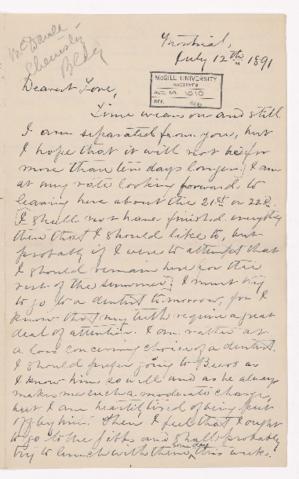 Montreal,
July 12th 1891
McGILL UNIVERSITY
ARCHIVES
ACC. NO. 1010
REF.
Dearest Love,
Time wears on and still
I am separated from you, but
I hope that it will not be for
more than ten days longer. I am
at any rate looking forward to
leaving here about the 21st or 22d.
I shall not have finished everything
then that I should like to, but
probably if I were to attempt that
I should remain here for the
rest of the summer. I must try
to go to a dentist to-morrow, for I
know that my teeth require a great
deal of attention. I am rather at
a loss concerning choice of a dentist.
I should prefer going to Beers as
I know him so well and as he always
makes me such a moderate charge,
but I am heartily tired of being put
off by him. Then I feel that I ought
to go to the and shall probably
try to lunch with them some day this week.